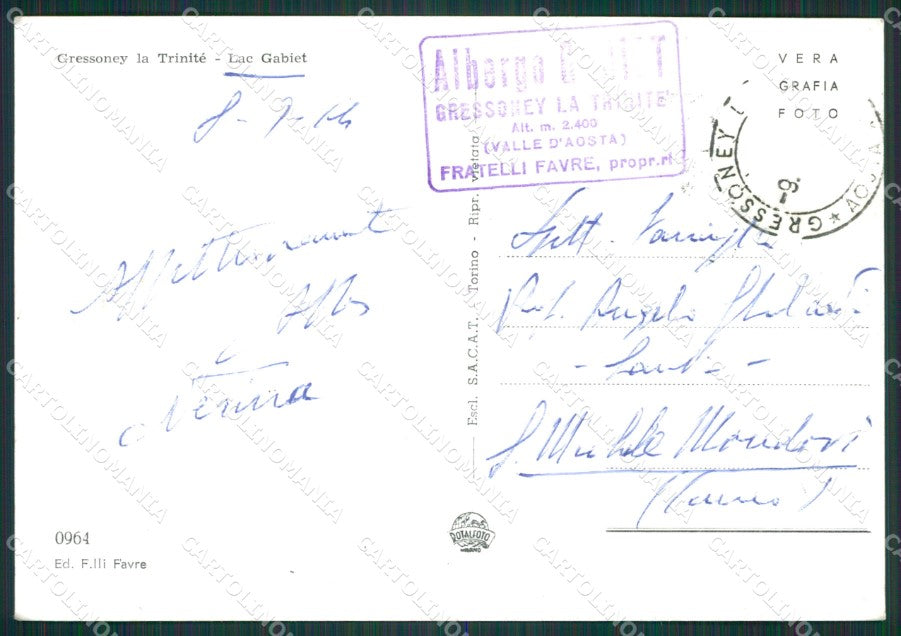 Gressoney la Trinité - Lac Gabiet
Albergo
GRESSONEY LA TRINITE'
Alt. m. 2.400
(VALLE D'AOSTA)
FRATELLI FAVRE, propr.ri
VERA
GRAFIA
FOTO
GRESSONEY
AOSTA
Affettuosamente
Nerina
Spett. Famiglia
Prof. Angelo
S. Michele Mondovì
(Cuneo)
Escl. S.A.C.A.T. Torino - Ripr. vietata
0964
Ed. F.lli Favre
ROTALFOTO
MILANO
CARTOLINOMANIA